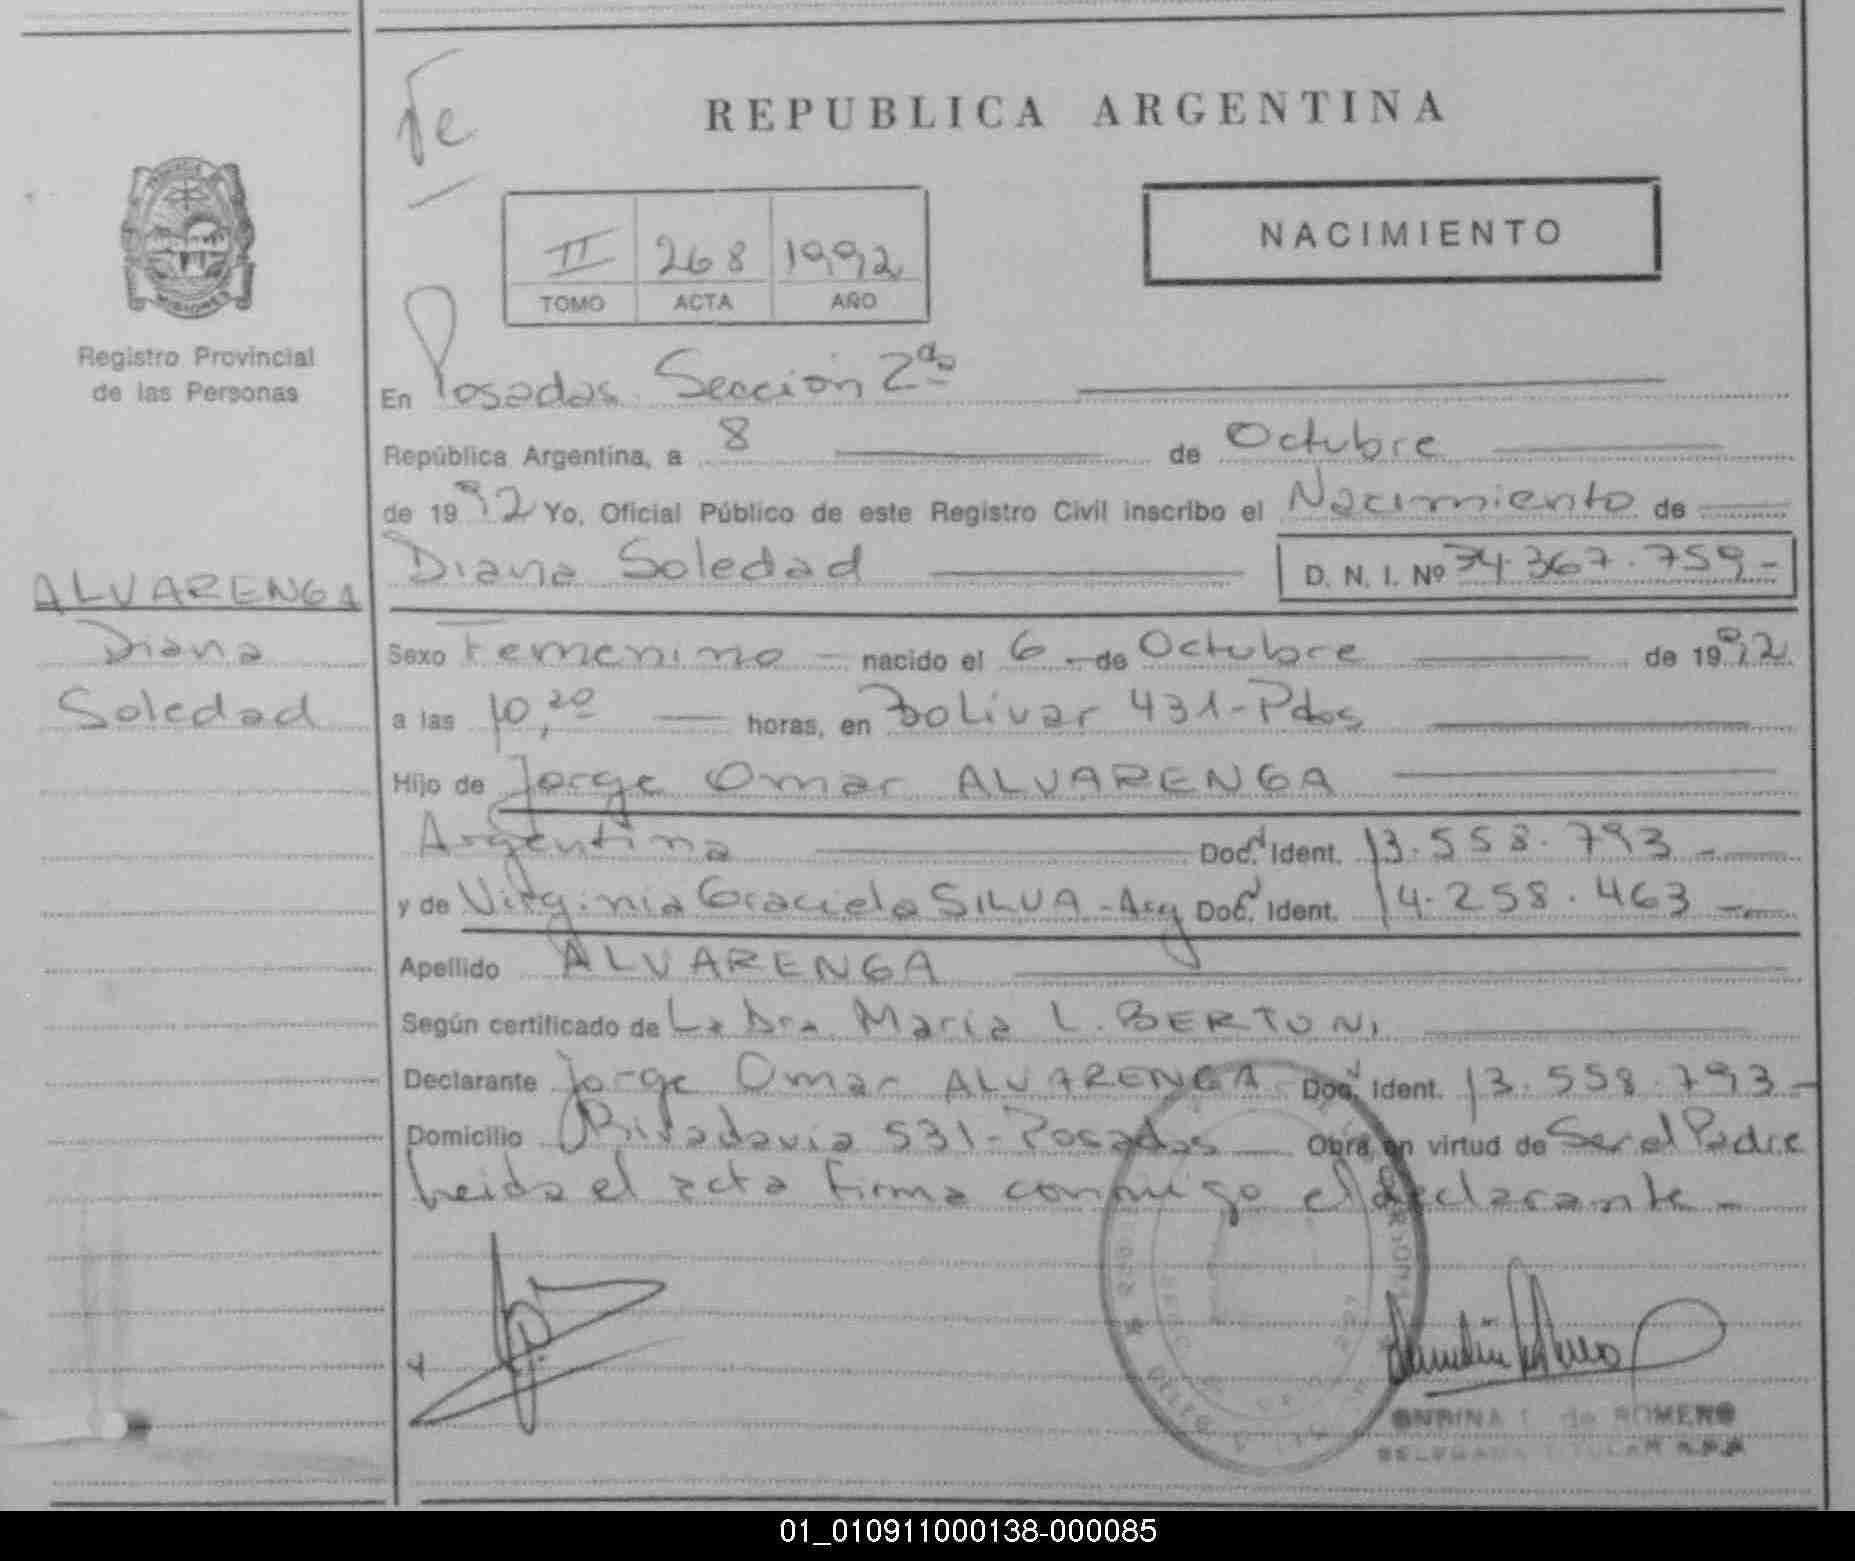 REPUBLICA ARGENTINA
NACIMIENTO
II 268 1992
TOMO ACTA AÑO
MISIONES
Registro Provincial
de las Personas
En Posadas Sección 2da
República Argentina, a 8 de Octubre
de 1992 Yo, Oficial Público de este Registro Civil inscribo el Nacimiento de
Diana Soledad D. N. I. Nº 34.367.759-
ALVARENGA
Diana
Soledad
Sexo Femenino - nacido el 6 - de Octubre de 1992
a las 10,20 horas, en Bolívar 431-Pdas
Hijo de Jorge Omar ALVARENGA
Argentina Doc. Ident. 13.558.793 -
y de Virginia Graciela SILVA - Arg Doc. Ident. 14.258.463 -
Apellido ALVARENGA
Según certificado de La Dra. María L. BERTONI
Declarante Jorge Omar ALVARENGA Doc. Ident. 13.558.793-
Domicilio Rivadavia 531-Posadas Obra en virtud de Ser el Padre
Leida el acta firma conmigo el declarante -
de ROMERO
TITULAR
01_010911000138-000085